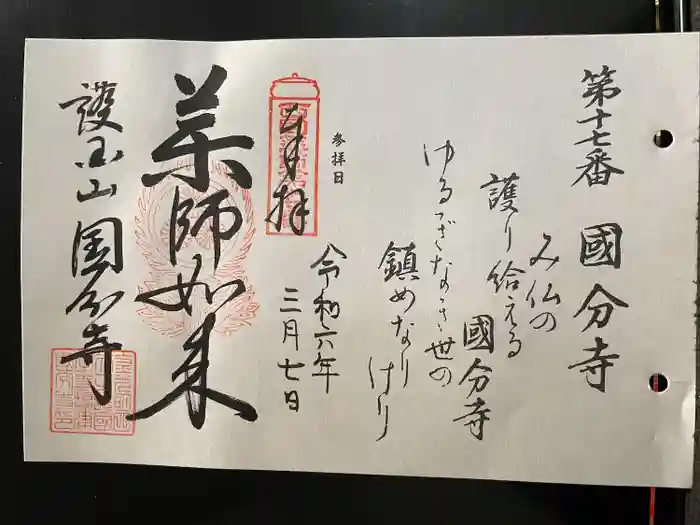 第十七番 國分寺
み仏の
護り給える
國分寺
ゆるぎなき世の
鎮めなり
けり
参拝日
令和六年
三月七日
奉拝
薬師如来
護国山国分寺